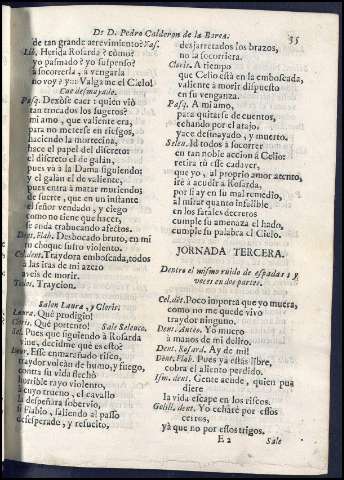 De D. Pedro Calderon de la Barca.
55
de tan grande atrevimiento? Vas.
Lib. Herida Rosarda? cómo?
yo pasmado? yo suspenso?
à socorrerla, à vengarla
no voy? y ya? Valgame el Cielo!
Cae desmayado.
Pasq. Dexòse caer: quien viò
tan trocados los sugetos?
mi amo, que valiente era,
para no meterse en riesgos,
haciendo la mortecina,
hace el papel del discreto:
el discreto el de galán,
pues và à la Dama siguiendo;
y el galán el de valiente,
pues entra à matar muriendo;
de suerte, que en un instante
el señor vendado, y ciego
como no tiene que hacer,
se anda trabucando afectos.
Dent. Flab. Desbocado bruto, en mi
tu choque sufro violento.
Cel. dent. Traydora emboscada, todos
à las iras de mi azero
aveis de morir.
Todos. Traycion.
Salen Laura, y Cloris.
Laura. Què prodigio!
Cloris. Què portento! Sale Selenco.
Sel. Pues que siguiendo à Rosarda
vine, decidme què es esto?
Laur. Esse enmarañado risco,
traydor volcàn de humo, y fuego,
contra su vida flechò
horrible rayo violento,
à cuyo trueno, el cavallo
la despeñàra sobervio,
si Flabio, saliendo al passo
desesperado, y resuelto,
desjarretados los brazos,
no la socorriera.
Cloris. A tiempo
que Celio està en la emboscada,
valiente à morir dispuesto
en su venganza.
Pasq. A mi amo,
para quitarse de cuentos,
echando por el atajo,
yace desmayado, y muerto.
Selen. Id todos à socorrer
en tan noble accion à Celio:
retira tù esse cadaver,
que yo, al proprio amor atento,
irè à acudir à Rosarda,
por si ay en su mal remedio,
al mirar quanto infalible
en los fatales decretos
cumple su amenaza el hado,
cumple su palabra el Cielo.
JORNADA TERCERA.
Dentro el mismo ruido de espadas; y
voces en dos partes.
Cel. dēt. Poco importa que yo muera,
como no me quede vivo
traydor ninguno.
Dent. Anteo. Yo muero
à manos de mi delito.
Dent. Rosard. Ay de mi!
Dent. Flab. Pues ya estàs libre,
cobra el aliento perdido.
Ism. dent. Gente acude, quien pudiere
la vida escape en los riscos.
Gelil. dent. Yo echarè por essos
cerros,
yà que no por essos trigos.
E 2
Sale